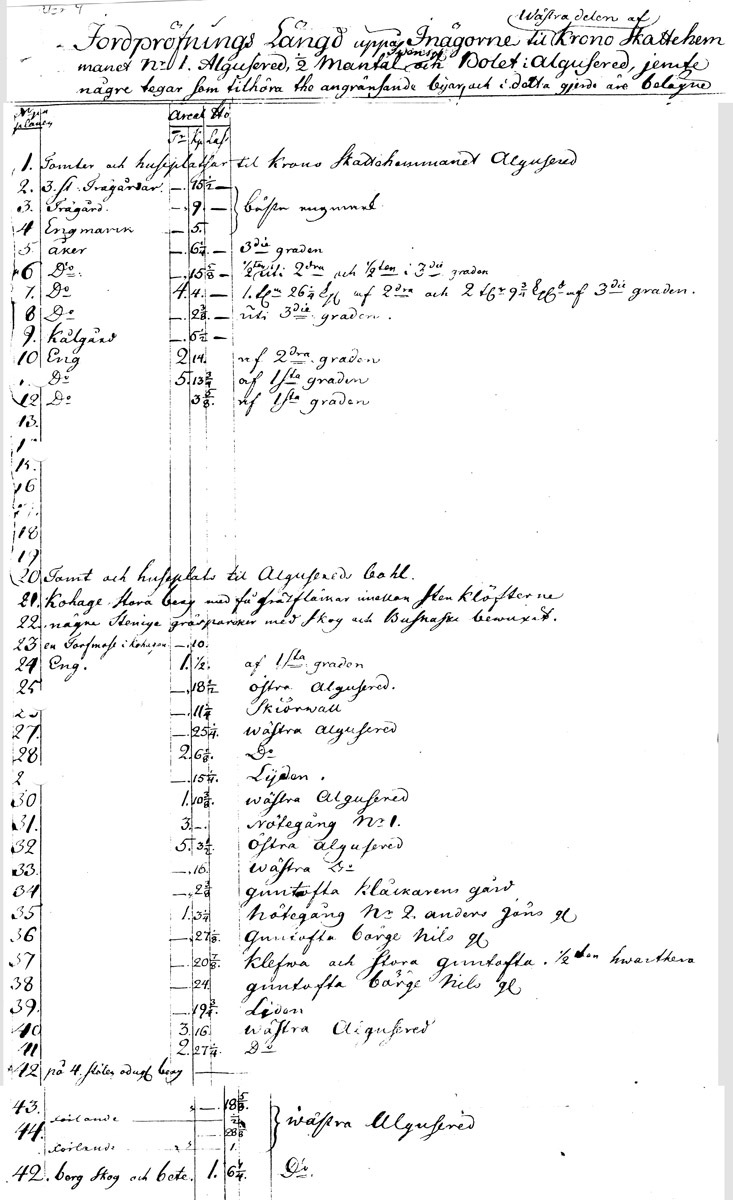 Wästra delen af
Jordpröfnings Längd uppå Inägorne til Krono Skattehem
manet No 1. Algusered, 1/2 Mantal och Bolet i Algusered, jemte
några tegar som tilhöra the angränsande byar, och i detta gjerde äre belägne
Areal Hö
Tr Kp Lass
1. Tomter och husplatsar til Krono Skattehemmanet Algusered
2. 3. st. Trägårdar — 15 1/2 —
3. Trägård. — 9. — bästa engmark
4 Engmark — 5.
5 åker — 6 1/4 — 3die graden
6 Do. — 15 5/8 — 1/2ten uti 2dra och 1/2ten i 3die graden
7. Do 4. 4. — 1. 26 1/4 af 2dra och 2 9 3/4 af 3die graden.
8 Do — 2 3/8 — uti 3die graden.
9. Kålgård — 5 1/2 —
10 Eng 2 14. af 2dra graden
Do 5. 13 3/4 af 1sta graden
12 Do 3 5/8. af 1sta graden
13.
15.
16
18
19
20 Tomt och husplats til Algusereds bohl.
21. Kohage Stora berg med få gräsfläckar imellan Sten klöfterne
22. några Stenige gräsparker med Skog och Buskaske bewuxit.
23 en Torfmose i Kohagen — 10.
24 Eng. 1. 1/2. af 1sta graden
25 — 18 1/2 östra Algusered.
— 11 1/4 Skiörwall
27. — 25 1/4. wästra Algusered
28 2. 6 1/8. Do
2 — 15 1/4. Lijden.
30 1. 10 3/8 wästra Algusered
31. 3 —. Nötegång No 1.
32 5. 3 1/2 östra Algusered
33. — 16 wästra Do
34 — 2 3/8 guntofta Klåckarens gård
35 1. 3 1/4 Nötegång No 2. anders Jöns gl
36 — 27 1/8. Guntofta börge Nils gl
37 — 20 7/8 Klefwa och Stora guntofta. 1/2ten hwarthera
38 — 24 guntofta börge Nils gl
39. — 19 3/4 Liden
40 3. 16 wästra Algusered
41 2. 27 1/4. Do
42 på 4. ställen odugl berg
43. — 18 5/8
wästra Algusered
44.
42. berg Skog och bete. 1. 6 1/4. Do.